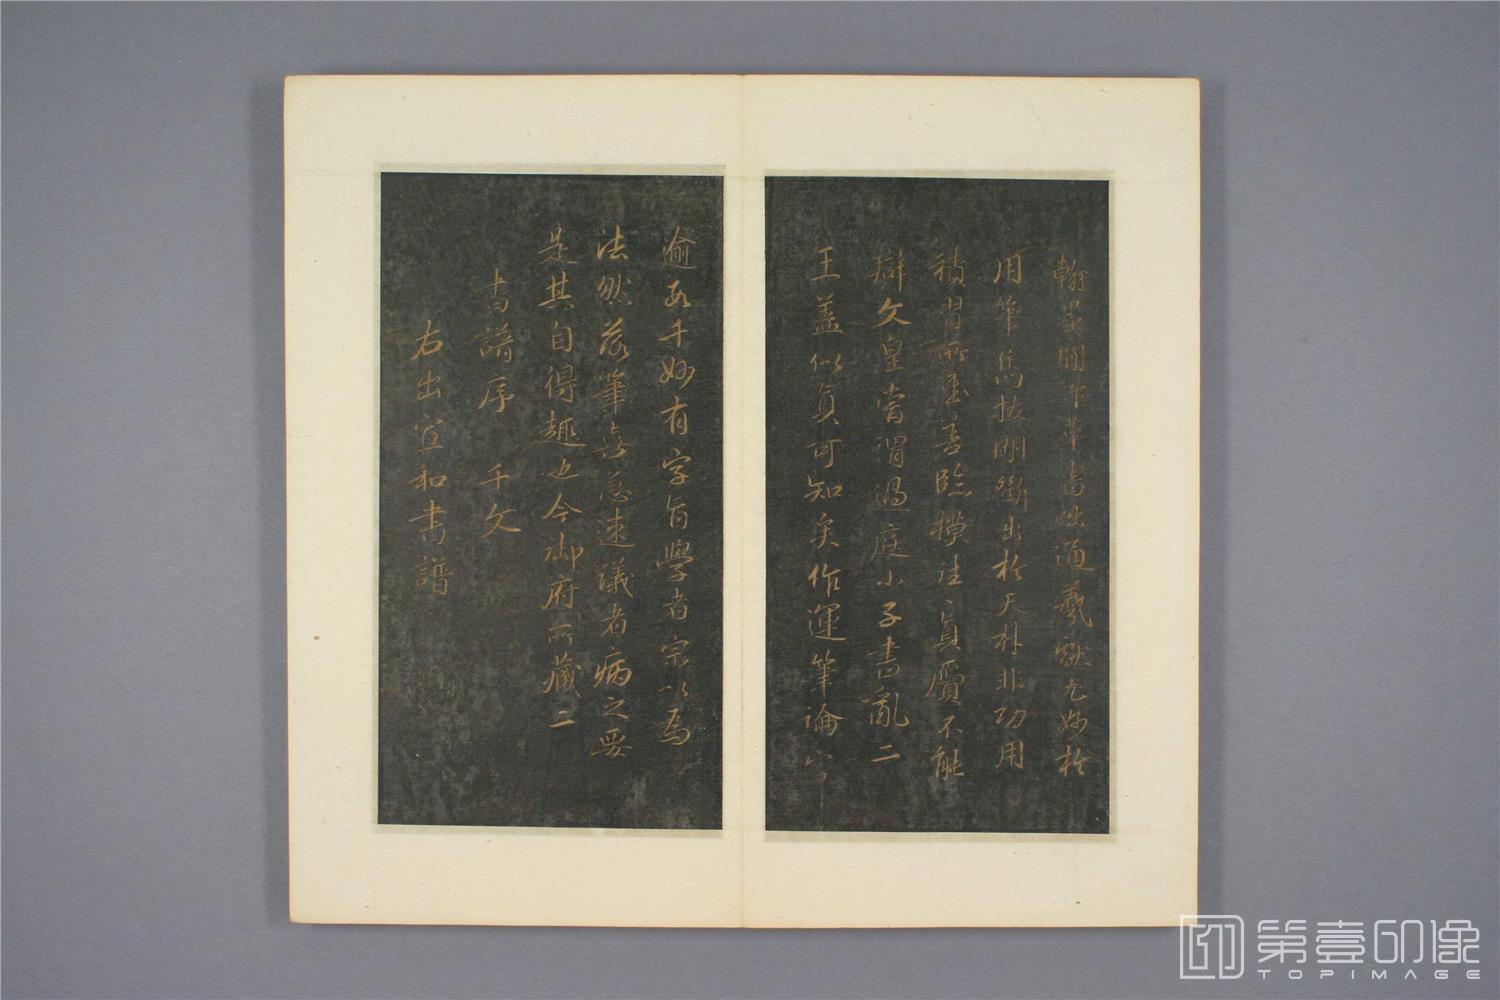 翰墨間作草書咄逼羲獻尤妙於
用筆雋拔剛斷出於天材非功用
積習所至善臨模往〻真贋不能
辯文皇嘗謂過庭小子書亂二
王蓋似真可知矣作運筆論字
逾數千妙有字旨學者宗以為
法然落筆喜急速議者病之要
是其自得趣也今御府所藏二
書譜序 千文
右出宣和書譜
第壹印像
TOPIMAGE